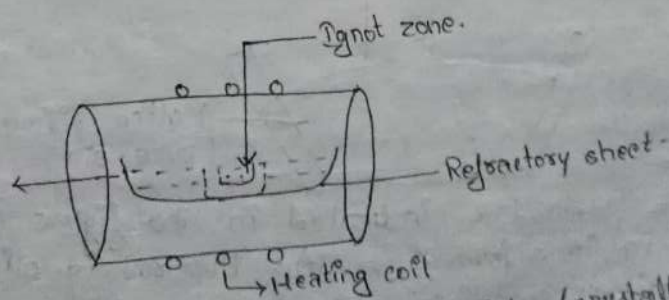 Ignot zone.
Refractory sheet.
Heating coil